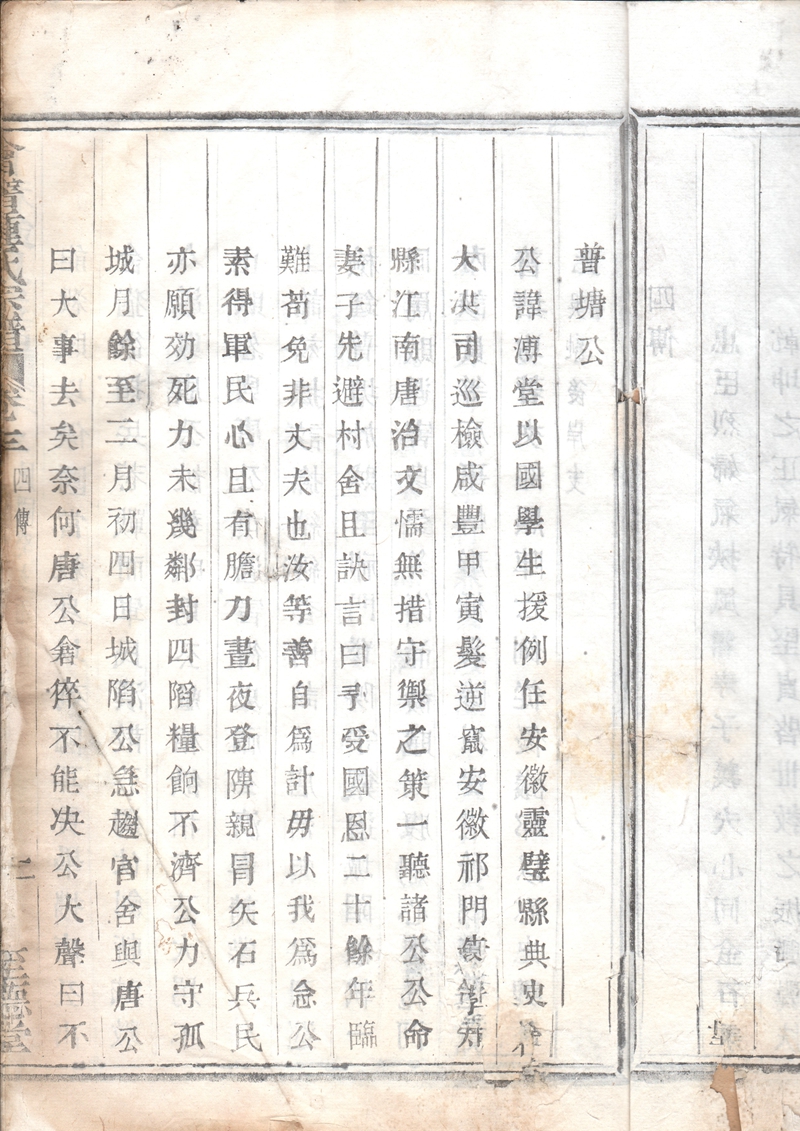 普塘公
公諱溥堂以國學生援例任安徽靈璧縣典史
大洪司巡檢咸豐甲寅髮逆竄安徽祁門
縣江南唐治文懦無措守禦之策一聽諸公公命
妻子先避村舍且訣言曰予受國恩二十餘年臨
難苟免非丈夫也汝等善自爲計毋以我爲念公
素得軍民心且有膽力晝夜登陴親冒矢石兵民
亦願効死力未幾鄰封四陷糧餉不濟公力守孤
城月餘至二月初四日城陷公急趨官舍與唐公
曰大事去矣奈何唐公倉猝不能决公大聲曰不
氏宗譜 卷之三 四傳 二 至德堂